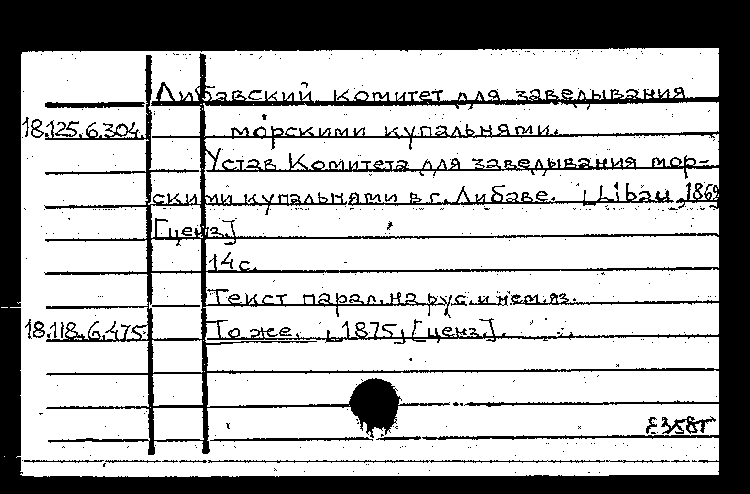 Либавский Комитет для заведывания
18.125.6.304. морскими купальнями.
Устав Комитета для заведывания мор-
скими купальнями в г. Либаве. [Libau, 1869
[ценз.]
14 с.
Текст парал. на рус. и нем. яз.
18.118.6.475 То же. [1875] [ценз.].